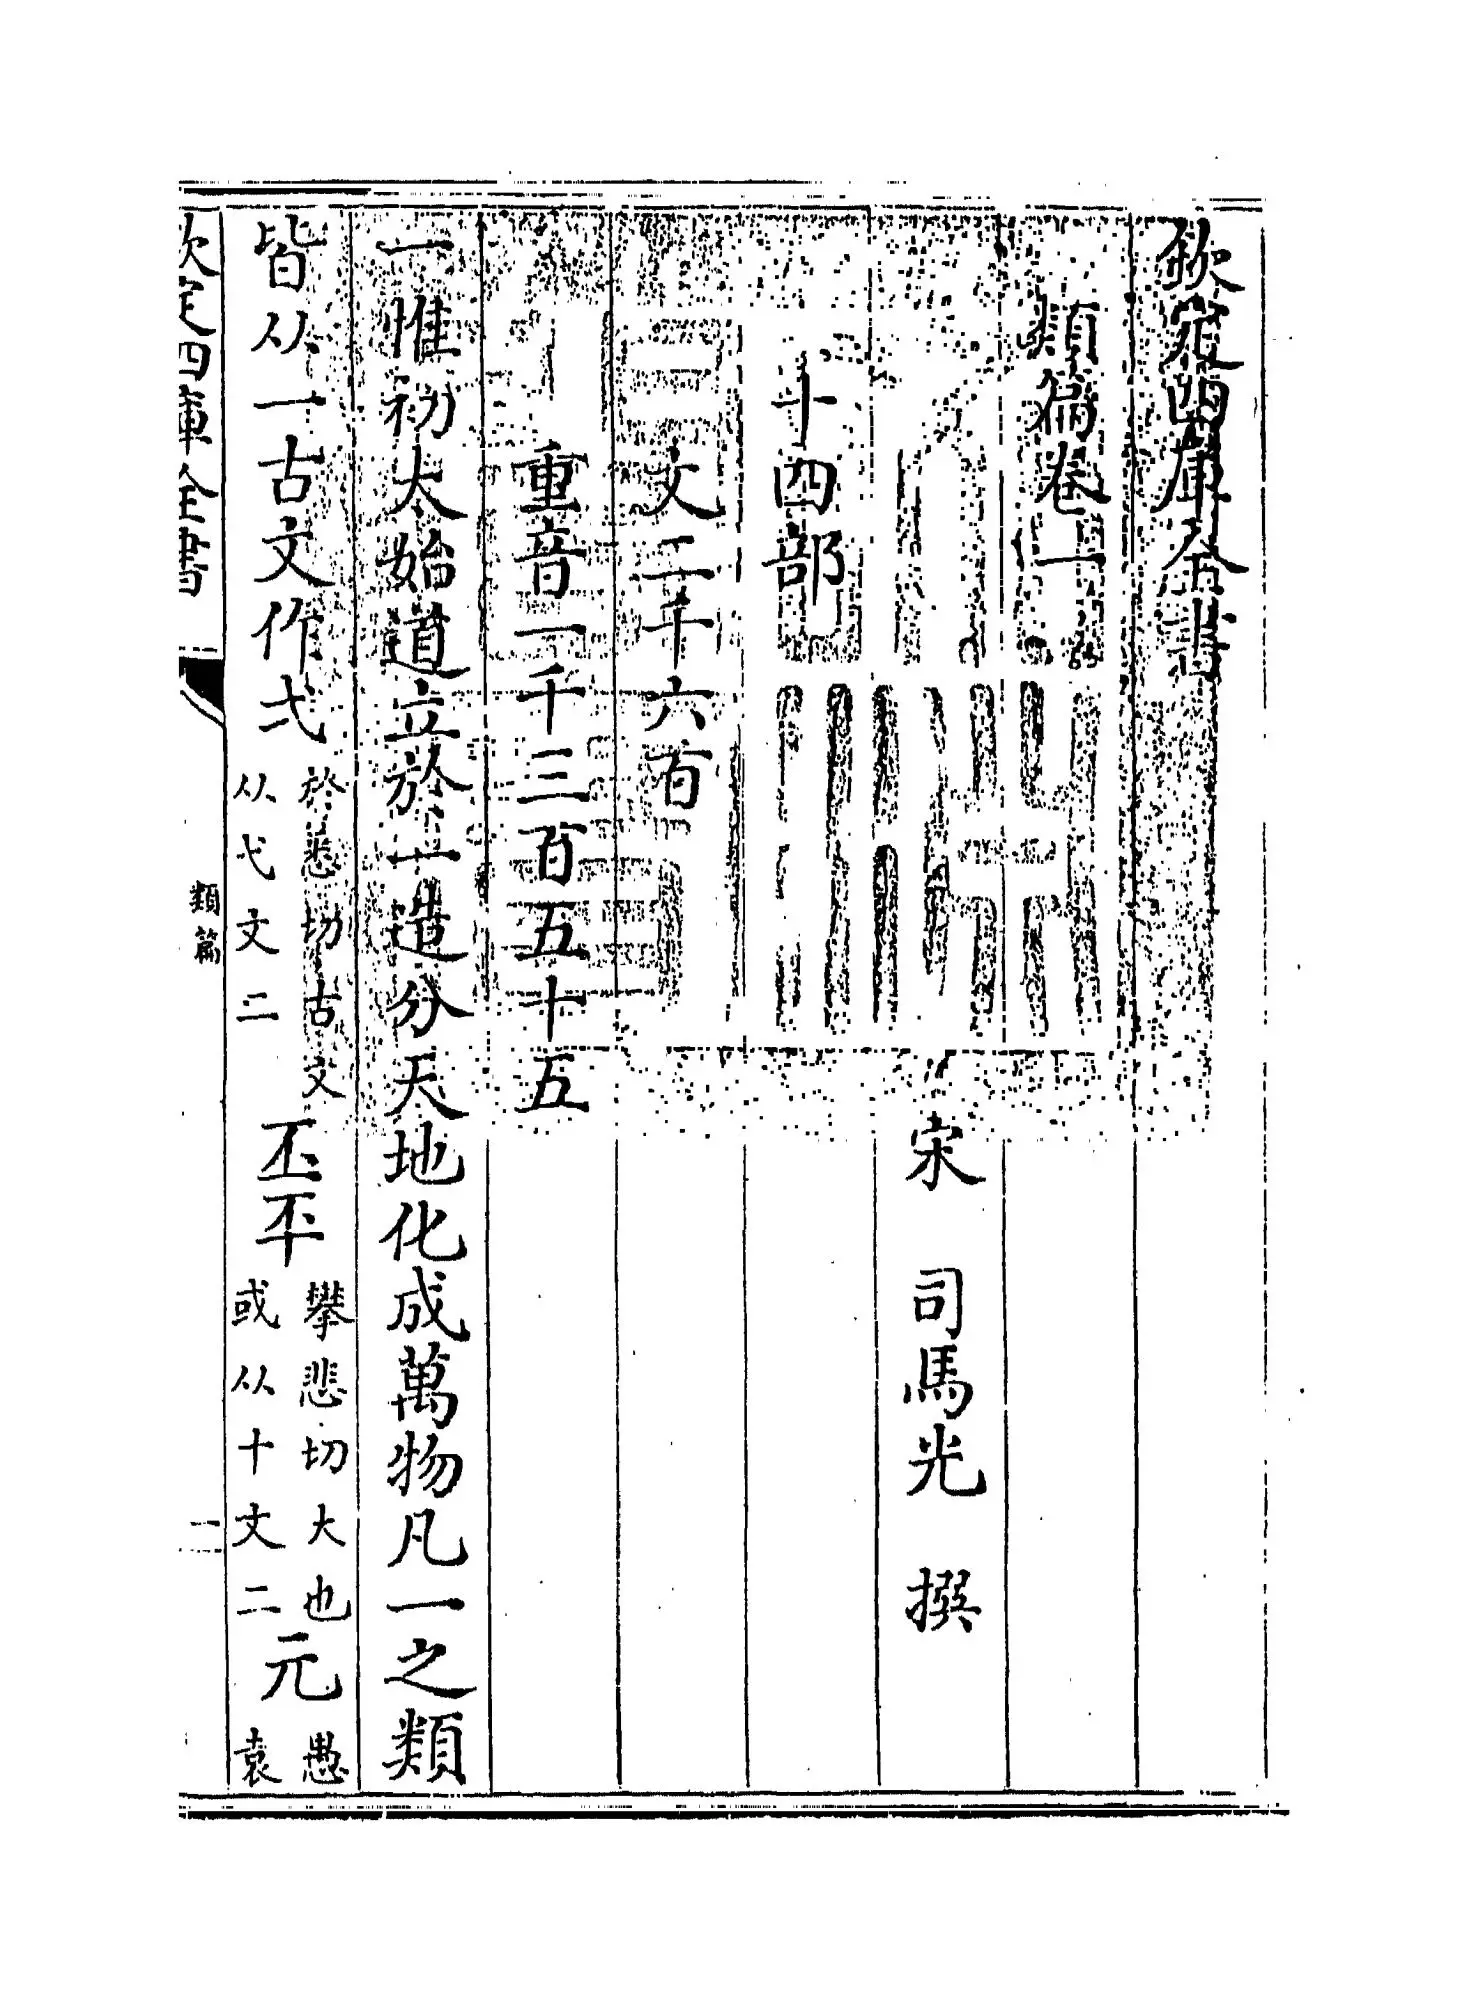 欽定四庫全書
類篇卷一
宋 司馬光 撰
十四部
文二千六百
重音一千三百五十五
一惟初太始道立於一造分天地化成萬物凡一之類
皆从一古文作弌於悉切古文从弋文二丕㔻攀悲切大也或从十文二元愚袁
欽定四庫全書 類篇 一